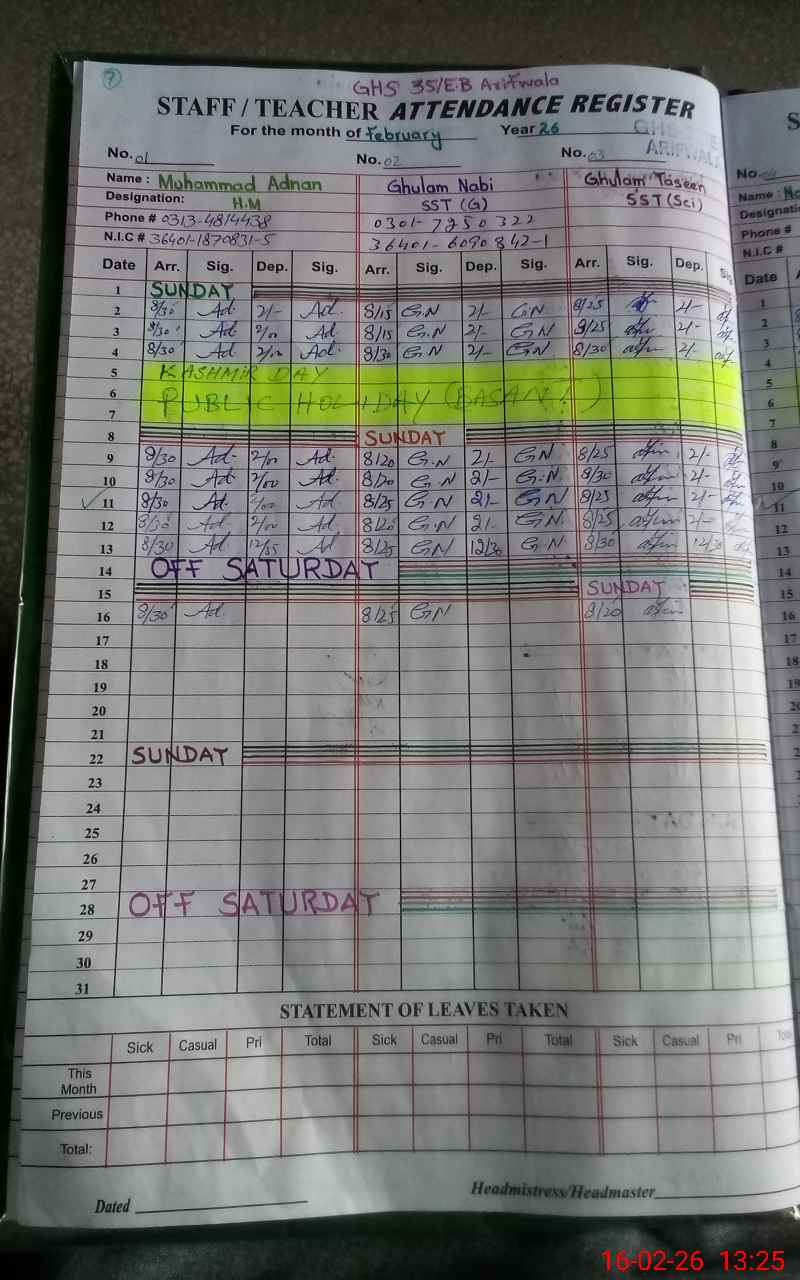 7
GHS 35/E.B Arifwala
STAFF / TEACHER ATTENDANCE REGISTER
For the month of February Year 26
ARIFWALA
No. 01 No. 02 No. 03
Name : Muhammad Adnan Ghulam Nabi Ghulam Taseen
Designation: H.M SST (G) S'ST (Sci)
Phone # 0313-4814438 0301-7250322
N.I.C # 36401-1870831-5 36401-6090842-1
Date Arr. Sig. Dep. Sig. Arr. Sig. Dep. Sig. Arr. Sig. Dep. Sig
1 SUNDAY
2 8/30 Ad. 2/- Ad. 8/15 G.N 2/- G.N 8/25 2/-
3 8/30 Ad 2/00 Ad. 8/15 G.N 2/- G.N 8/25 2/-
4 8/30 Ad 2/00 Ad. 8/30 G.N 2/- G.N 8/30 2/-
5 KASHMIR DAY
6 PUBLIC HOLIDAY (BASANT)
7
8 SUNDAY
9 8/30 Ad. 2/00 Ad. 8/20 G.N 2/- G.N 8/25 2/-
10 8/30 Ad. 2/00 Ad. 8/20 G.N 2/- G.N 8/30 2/-
11 8/30 Ad. 2/00 Ad 8/25 G.N 2/- G.N 8/25 2/-
12 8/30 Ad. 2/00 Ad. 8/20 G.N 2/- G.N 8/25 2/-
13 8/30 Ad. 12/35 Ad 8/25 G.N 12/30 G.N 8/30 12/30
14 OFF SATURDAY
15 SUNDAY
16 8/30 Ad. 8/25 G.N 8/20
17
18
19
20
21
22 SUNDAY
23
24
25
26
27
28 OFF SATURDAY
29
30
31
STATEMENT OF LEAVES TAKEN
Sick Casual Pri Total Sick Casual Pri Total Sick Casual Pri
This
Month
Previous
Total:
Dated Headmistress/Headmaster
No.
Name :
Phone #
N.I.C #
Date
1
2
3
4
5
6
7
8
9
10
11
12
13
14
15
16
16-02-26 13:25